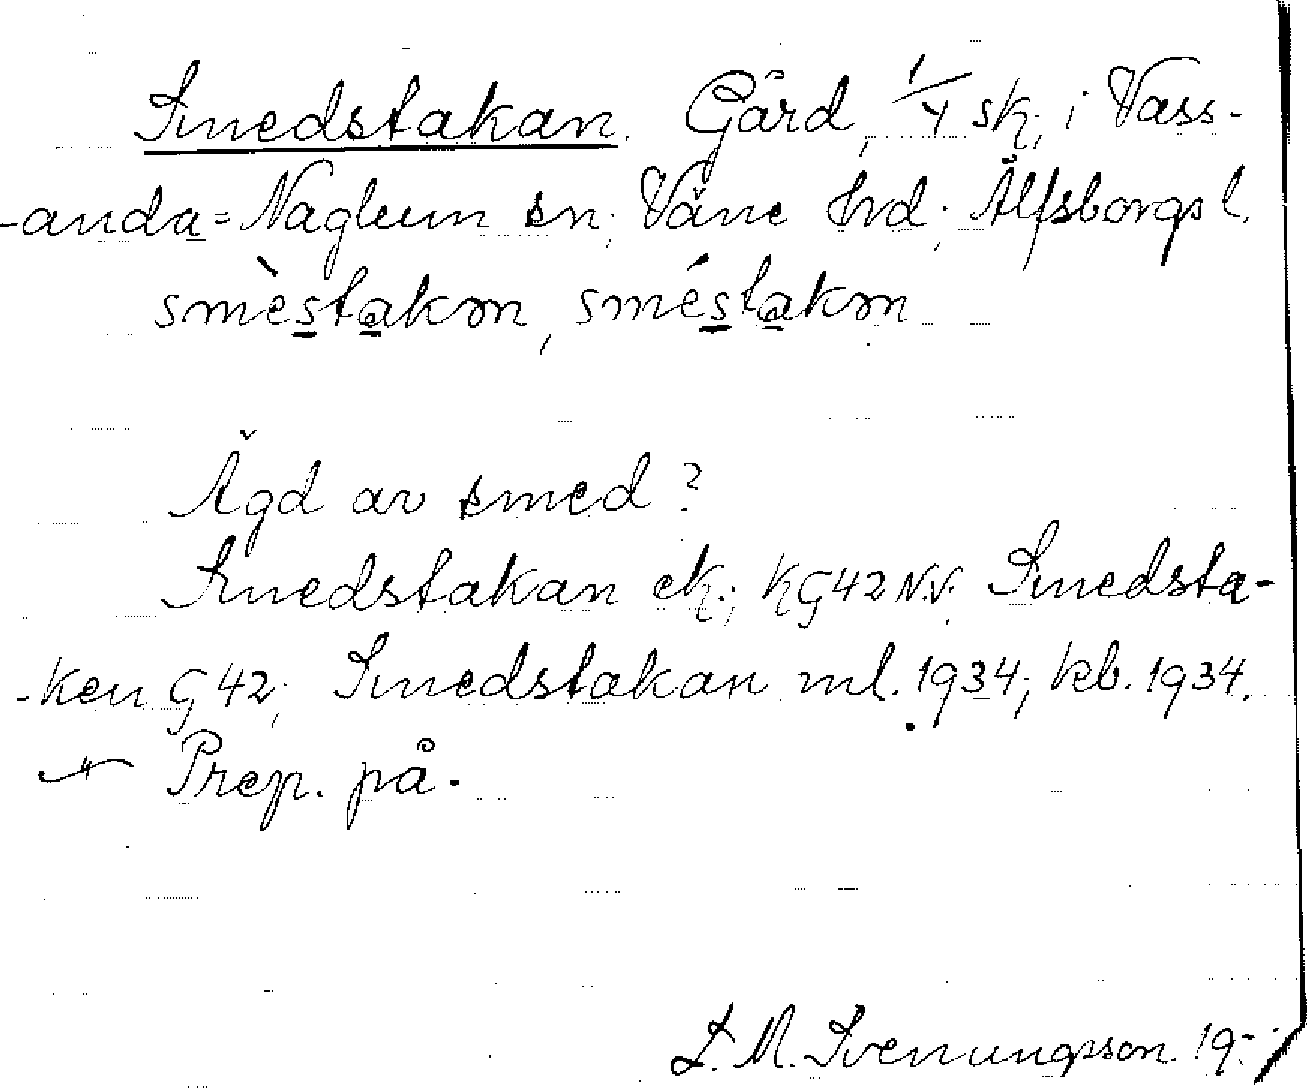 Smedstakan. Gård, 1/4 sk, i Vass-
-anda=Naglum sn; Väne hd; Älfsborgs l.
smèstakɷn, sméstakɷn
Ägd av smed?
Smedstakan ek; KG42NV. Smedsta-
-ken G42; Smedstakan ml. 1934; kb. 1934.
Prep. på.
S. M. Svenungsson. 19